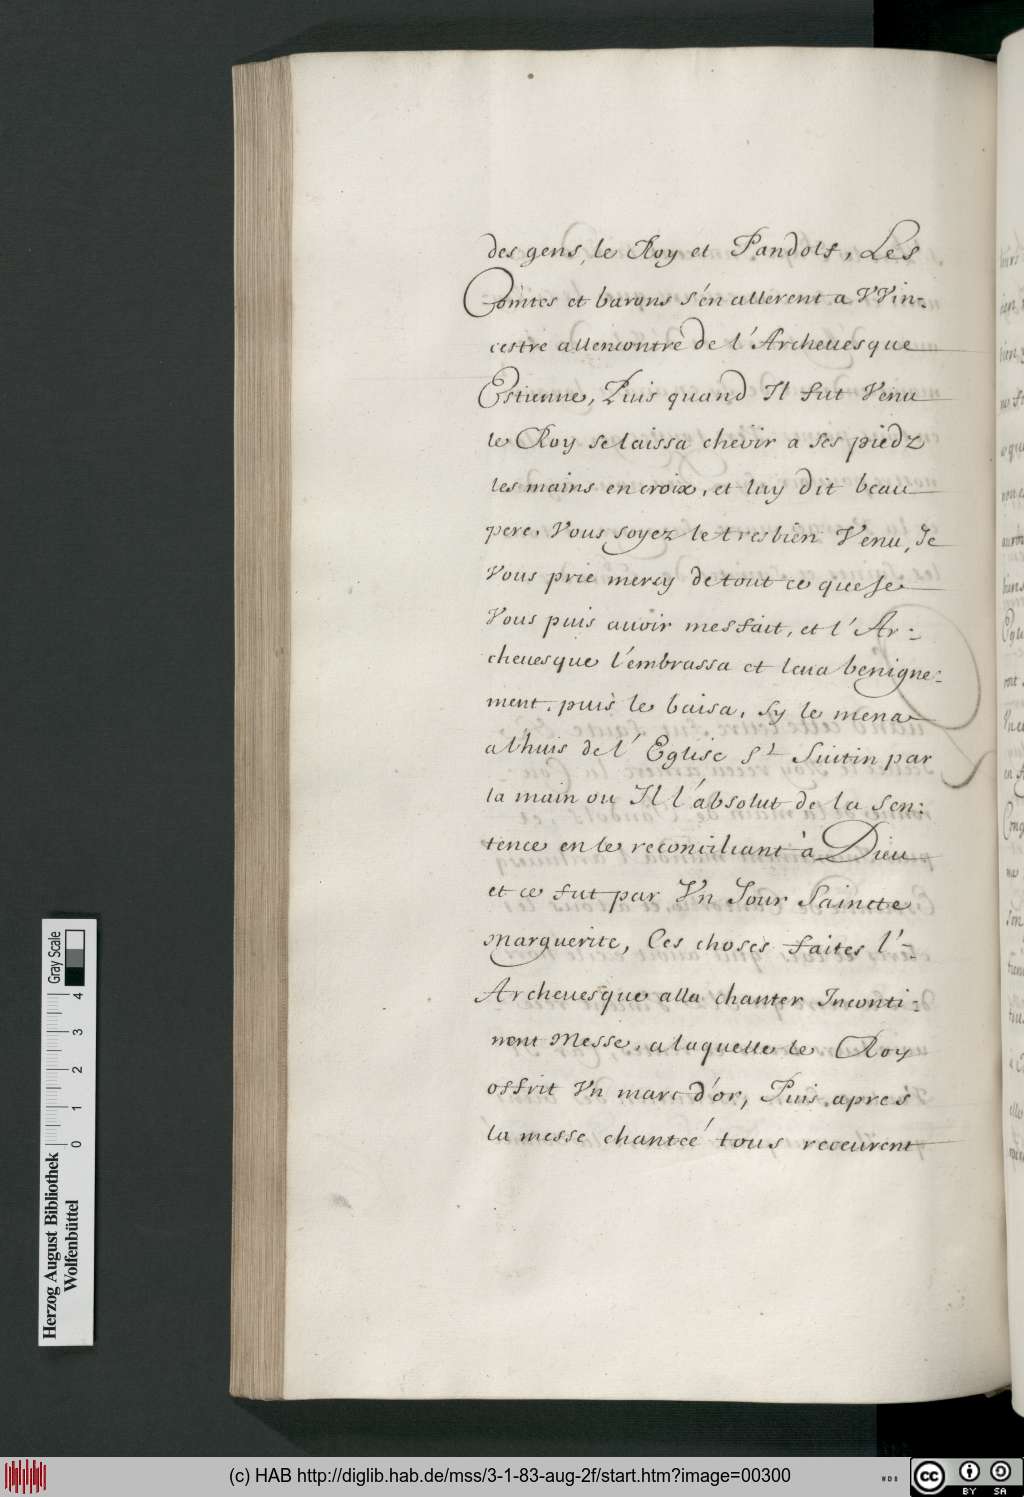 des gens, le Roy et Pandolf, Les
Comtes et barons s'en allerent a VVin-
cestre allencontre de l'Archeuesque
Estienne, Puis quand Il fut Venu
le Roy se laissa cheüir a ses piedz
les mains en croix, et luy dit beau
pere, Vous soyez le tresbien Venu, Je
Vous prie mercy de tout ce que Je
Vous puis auoir mesfait, et l'Ar-
cheuesque l'embrassa et leua benigne-
ment. puis le baisa, sy le mena
a l'huis de l'Eglise St Suitin par
la main ou Il l'absolut de la Sen-
tence en le reconciliant à Dieu
et ce fut par Vn Jour Saincte
Marguerite, Ces choses faites l'-
Archeuesque alla chanter Inconti-
nent Messe, a laquelle le Roy
offrit Vn marc d'or, Puis apres
la messe chanteé tous receurent
Herzog August Bibliothek
Wolfenbüttel
0 1 2 3 4
Gray Scale
(c) HAB http://diglib.hab.de/mss/3-1-83-aug-2f/start.htm?image=00300
WDB
cc BY SA